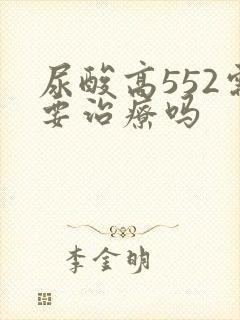 尿酸高552需
要治疗吗
李金明